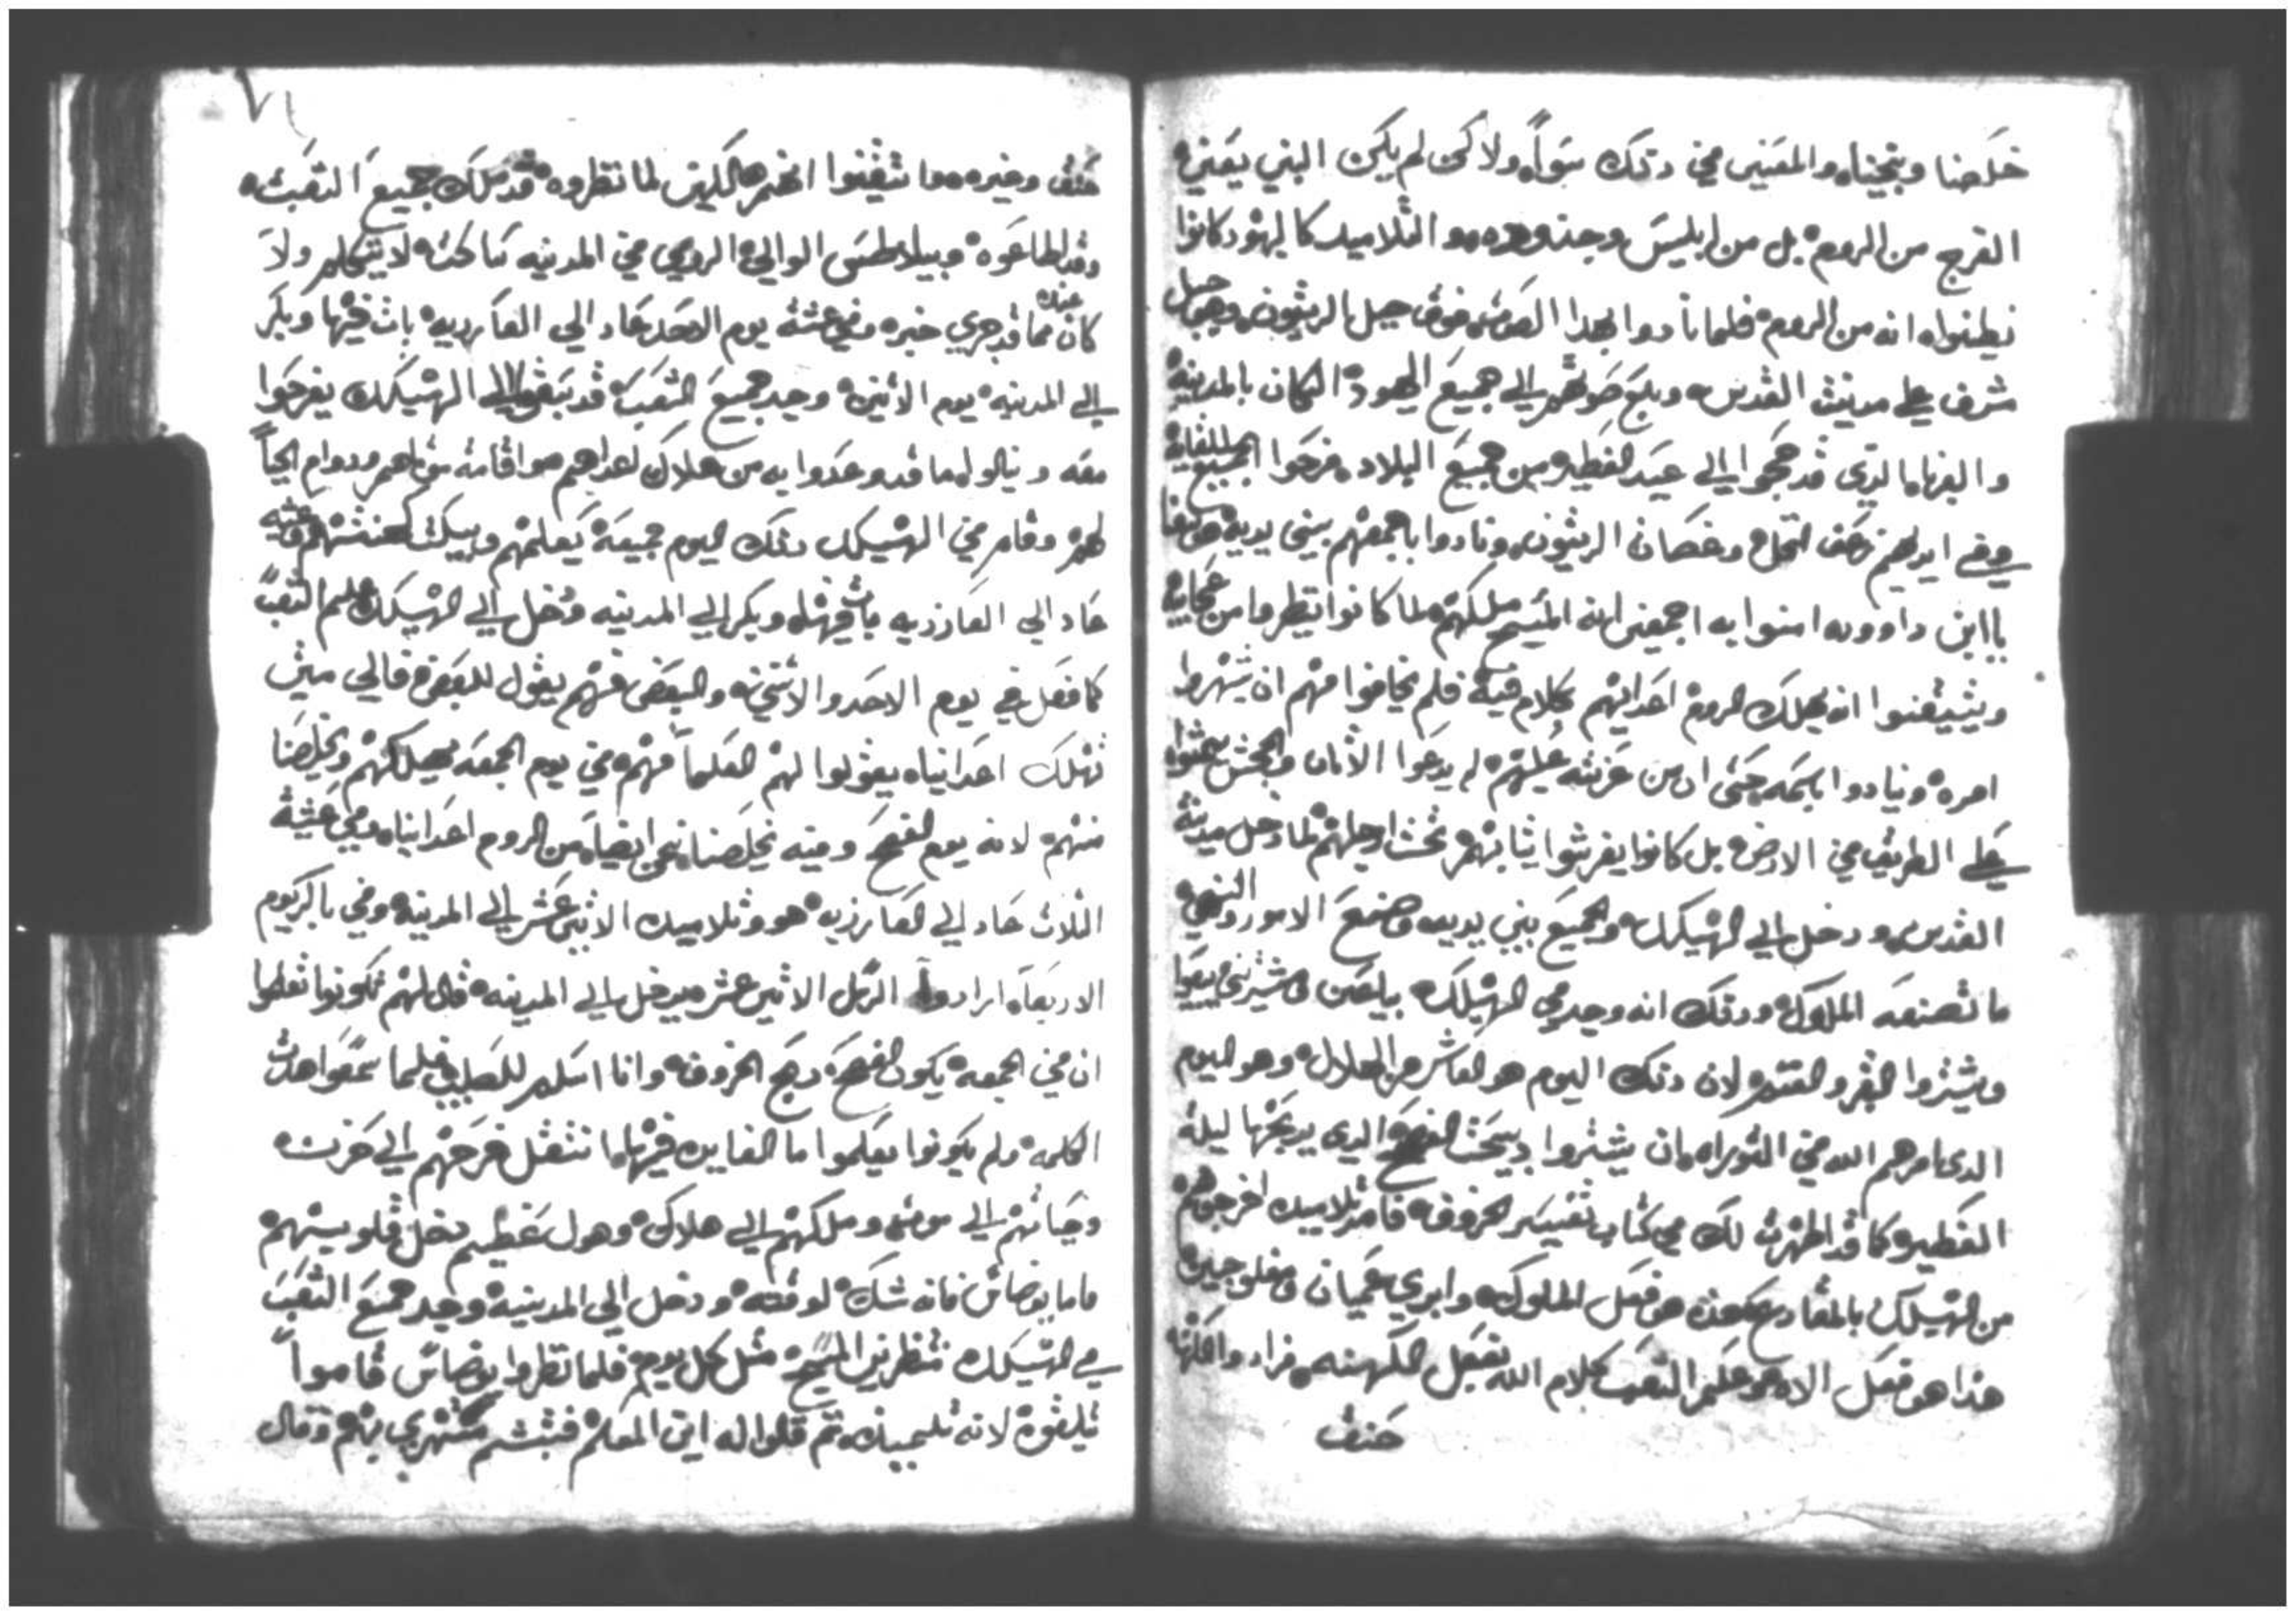 خلصنا ونجينا، والمعنيين في ذلك سوآء ولاكن لم يكن النبي يعني
الفرج من الروم، بل من ابليس وجنوده، والتلاميد كاليهود كانوا
يظنوا، انه من الروم، فلما نادوا بهدا الصوت، فوق جبل الزيتون، وهو جبل
مشرف على مدينت القدس، وبلغ صوتهم الى جميع اليهود، الكان بالمدينه
والغربا، الدي قد حجوا الى عيد الفطير، من جميع البلاد، فرحوا الجميع للقايه
وفي ايديهم سعف النخل، وغصان الزيتون، ونادوا باجمعهم بين يديه
يا ابن داوود، امنوا به اجمعين انه المسيح ملكهم، لما كانوا ينظروا من عجايبه
ويتيقنوا انه يهلك الروم، اعدايهم بكلام فيه، فلم يخافوا منهم ان يشهروا
امره، وينادوا باسمه، حتى ان من عزته عليهم، لم يدعوا الاتان والجحش يمشوا
على الطريق في الارض، بل كانوا يفرشوا ثيابهم تحت ارجلهم، لما دخل مدينة
القدس، ودخل الى الهيكل، والجميع بين يديه، وصنع الامور والنهي
ما تصنعه الملوك، ودلك انه وجد في الهيكل، بياعين ومشترين يبيعوا
ويشتروا البقر والغنم، لان دلك اليوم هو العاشر من الهلال، وهو اليوم
الدي امرهم الله في التوراه، بان يشتروا دبيحت الفصح، الدي يدبحها ليلة
الفطير، كما قد اظهرت لك في كتاب تفسير الخروف، فامر تلاميده اخرجوهم
من الهيكل، بالمقارع، هذا هو فعل الملوك، وابرى عميان ومفلوجين
هذا هو فعل الاله، وعلم الشعب كلام الله بفعل الكهنه، فزاد والكهنه
حنق
حنق وغيره، وما تيقنوا انهم هالكين، لما نظروه، قد ملك جميع الشعب،
وقد اطاعوه، وبيلاطس الوالي، الرومي في المدينه ساكت، لا يتكلم ولا
كان عنده مما قد جرى خبره، وفي عشية يوم الاحد عاد الى العازريه، بات فيها وبكر
الى المدينه، يوم الاثنين، وجد جميع الشعب، قد سبقوا الى الهيكل يفرحوا
معه، وينالوا ما قد وعدوا به من هلاك اعداهم، واقامة موتاهم، ودوام الحياً
لهم، وقام في الهيكل دلك اليوم جميعه، يعلمهم ويبكت كهنتهم، وعشيه
عاد الى العازريه بات فيها، وبكر الى المدينه ودخل الى الهيكل، علم الشعب
كما فعل في يوم الاحد والاثنين، والبعض منهم يقول للبعض، فالى متى
تهلك اعدانيا، يقولوا لهم العلماً منهم، في يوم الجمعه يهلكهم ويخلصنا
منهم، لانه يوم الفصح، وفيه يخلصنا نحن ايضاً، من الروم اعدانيا، وفي عشية
الثلاث عاد الى العازريه، هو وتلاميده الاثنى عشر الى المدينه، وفي باكر يوم
الاربعاء ارادوا الرسل الاثني عشر يدخل الى المدينه، قال لهم تكونوا تعلموا
ان في الجمعه، يكون الفصح، دبح الخروف، وانا اسلم للصليب، فلما سمعوا هدة
الكلمه، ولم يكونوا يعلموا ما الفايده فيها، انتقل فرحهم الى حزن،
وحياتهم الى موت، وملكهم الى هلاك، وهول عظيم دخل قلوبهم
فاما يوضاس فانه شك لوقته، ودخل الى المدينه، وجد جميع الشعب
في الهيكل، منتظرين المسيح، مثل كل يوم، فلما نظروا يوضاس قاموا
تلقوه لانه تلميده، تم قالوا له اين المعلم، فتبسم مستهزي بهم وقال